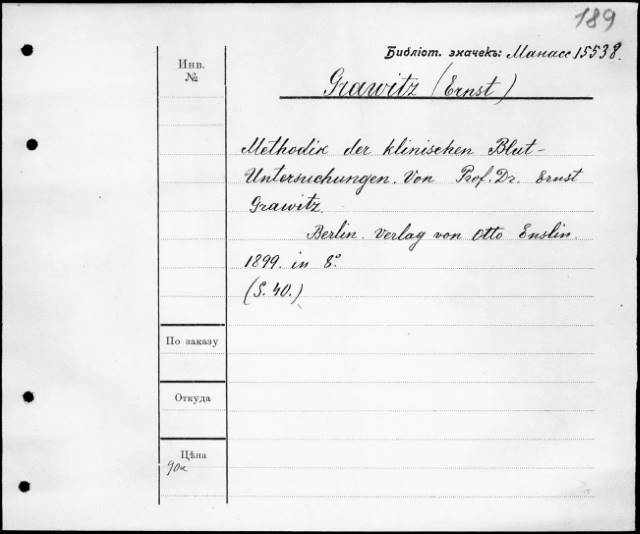 189
Библіот. значекъ: Манасс 15538.
Инв.
№
Grawitz (Ernst)
Methodik der klinischen Blut-
Untersuchungen. Von Prof. Dr. Ernst
Grawitz.
Berlin. Verlag von Otto Enslin.
1899. in 8°.
(S. 40.)
По заказу
Откуда
Цѣна
90к